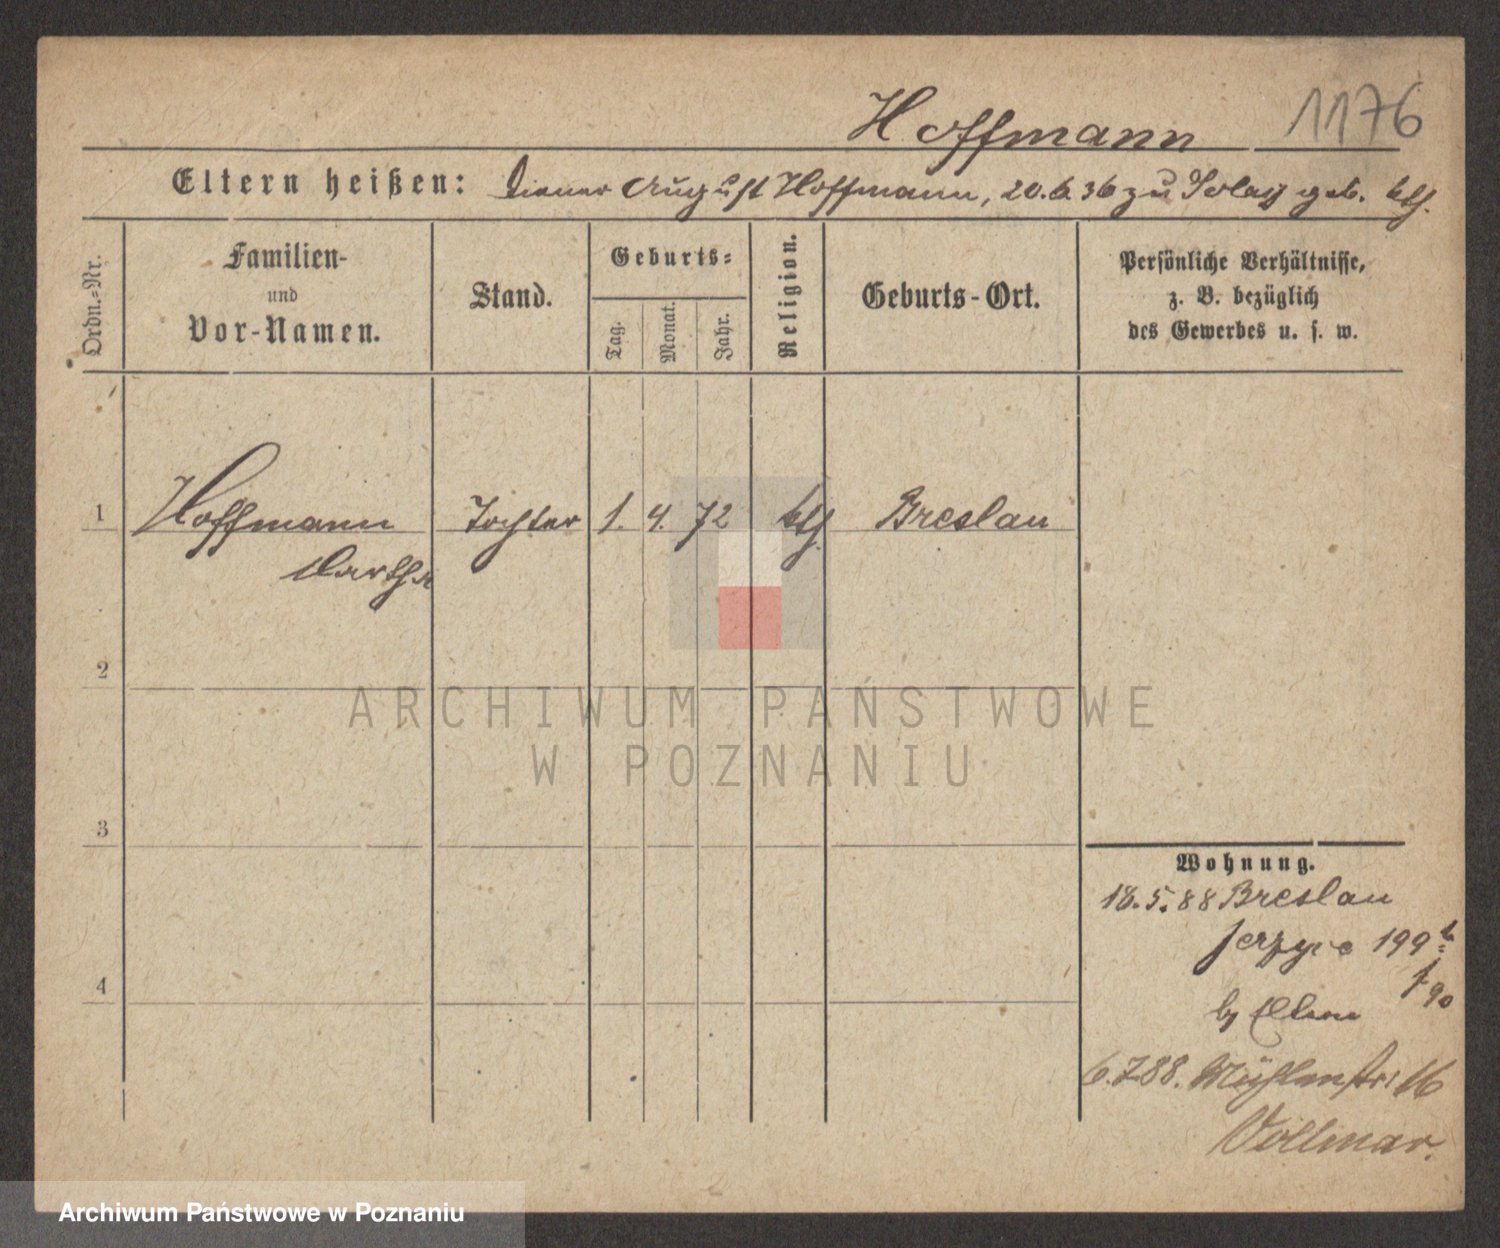 Hoffmann 1176
Eltern heißen: Diener August Hoffmann, 20.6.36 zu geb. kth.
Ordn.-Nr.
Familien-
und
Vor-Namen.
Stand.
Geburts-
Tag.
Monat.
Jahr.
Religion.
Geburts-Ort.
Persönliche Verhältnisse,
z. B. bezüglich
des Gewerbes u. s. w.
1 Hoffmann Tochter 1. 4. 72 kth. Breslau
Martha
2
3
4
Wohnung.
18.5.88 Breslau
Jerzyce 199
90
by Eltern
6.7.88. Mühlenstr. 16
Vollmar.
ARCHIWUM PAŃSTWOWE
W POZNANIU
Archiwum Państwowe w Poznaniu